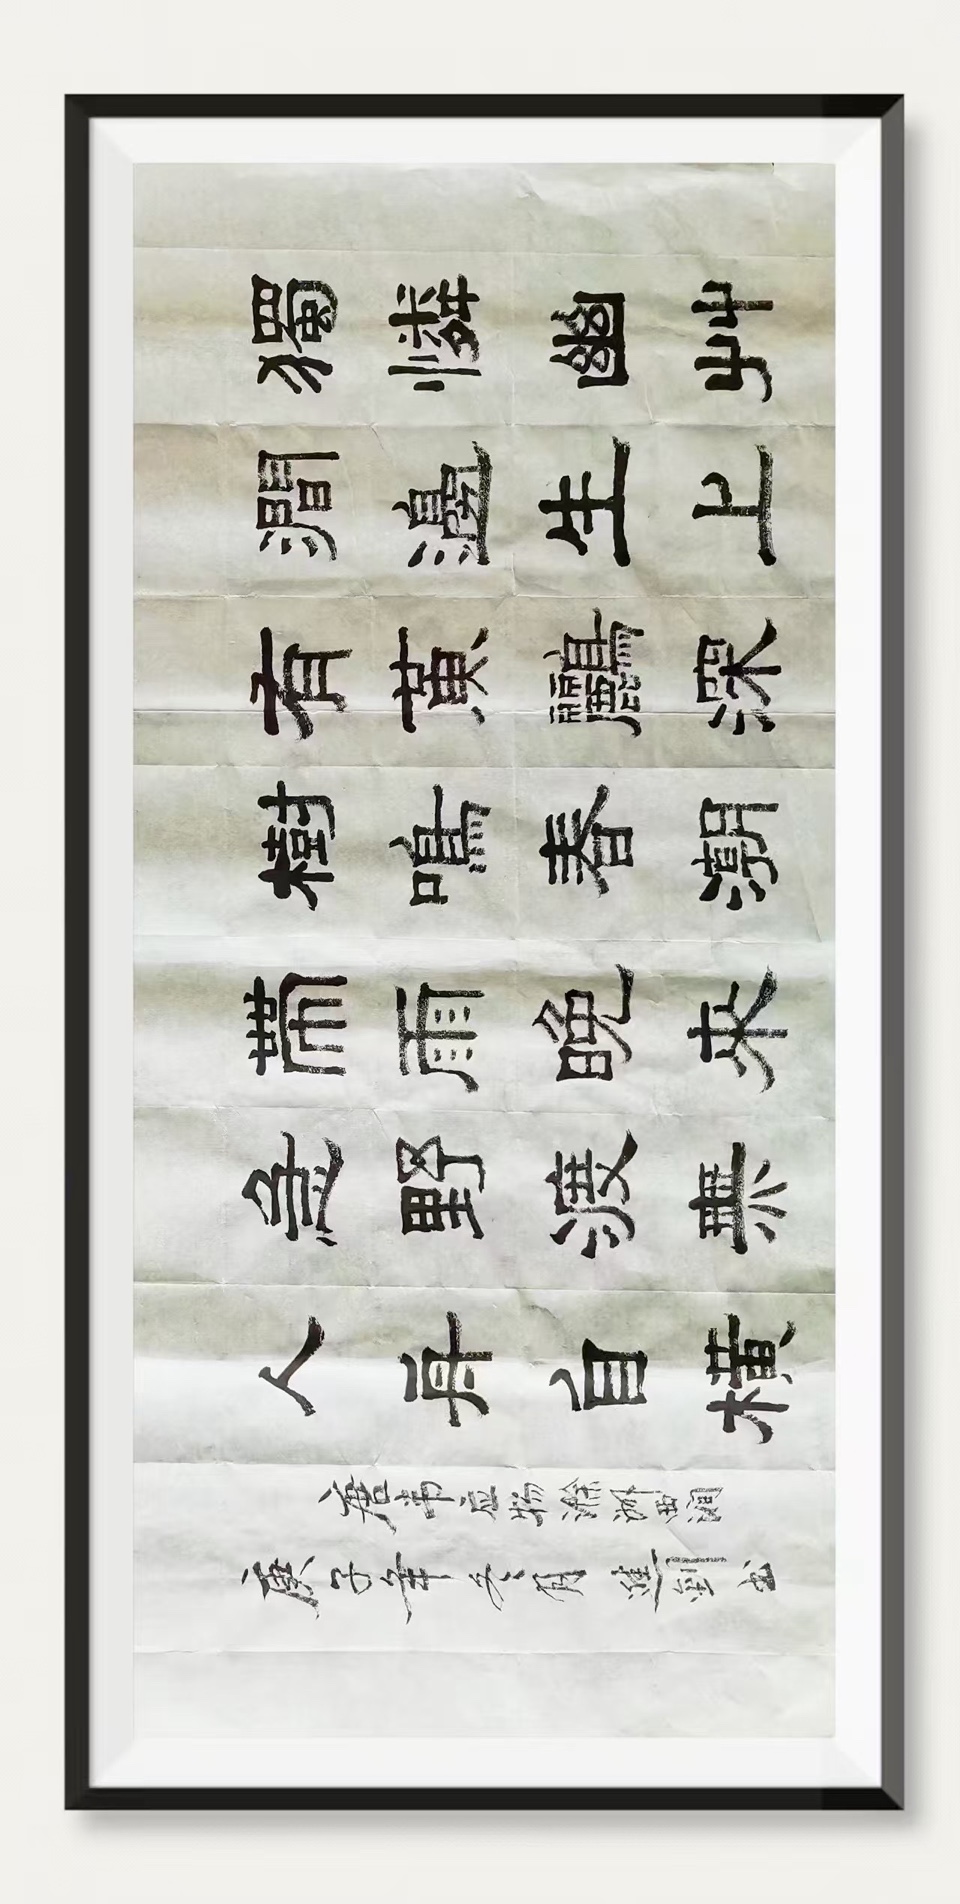 獨憐幽艸
澗邊生上
有黃鸝深
樹鳴春潮
帶雨晚来
急野渡無
人舟自橫
唐韋应物滁州西澗
庚子年冬月 書